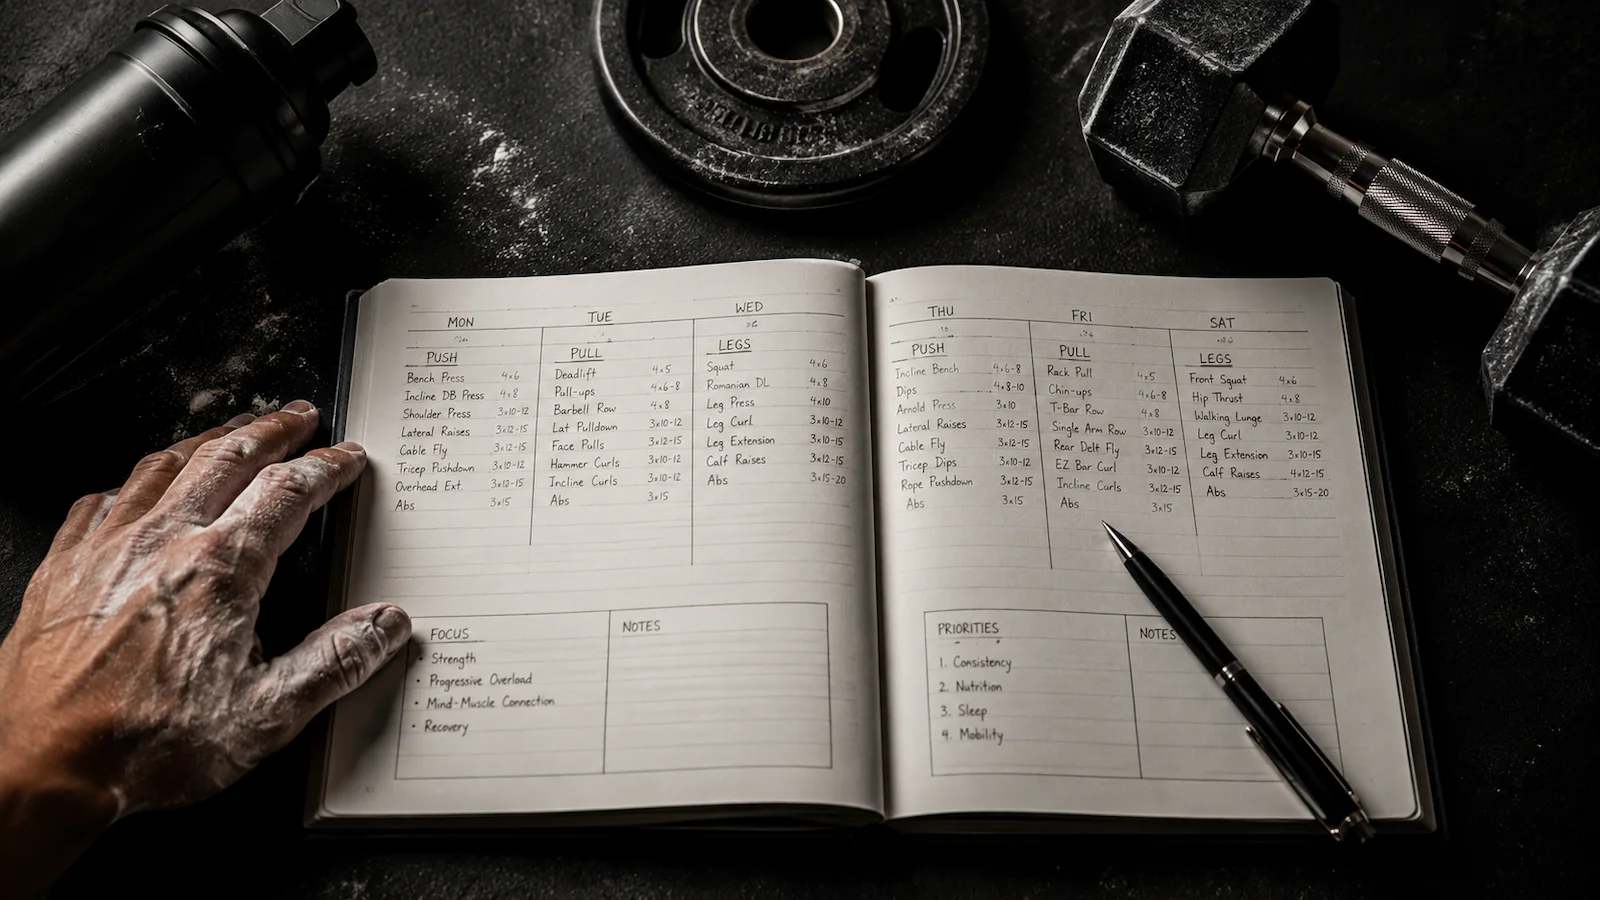 MON
PUSH
Bench Press 4x6
Incline DB Press 4x8
Shoulder Press 3x10-12
Lateral Raises 3x12-15
Cable Fly 3x12-15
Tricep Pushdown 3x10-12
Overhead Ext. 3x12-15
Abs 3x15
TUE
PULL
Deadlift 4x5
Pull-ups 4x6-8
Barbell Row 4x8
Lat Pulldown 3x10-12
Face Pulls 3x12-15
Hammer Curls 3x10-12
Incline Curls 3x10-12
Abs 3x15
WED
LEGS
Squat 4x6
Romanian DL 4x8
Leg Press 4x10
Leg Curl 3x10-12
Leg Extension 3x10-15
Calf Raises 3x12-15
Abs 3x15-20
FOCUS
• Strength
• Progressive Overload
• Mind-Muscle Connection
• Recovery
NOTES
THU
PUSH
Incline Bench 4x6-8
Dips 4x8-10
Arnold Press 3x10
Lateral Raises 3x12-15
Cable Fly 3x12-15
Tricep Dips 3x10-12
Rope Pushdown 3x12-15
Abs 3x15
FRI
PULL
Rack Pull 4x5
Chin-ups 4x6-8
T-Bar Row 4x8
Single Arm Row 3x10-12
Rear Delt Fly 3x12-15
EZ Bar Curl 3x10-12
Incline Curls 3x12-15
Abs 3x15
SAT
LEGS
Front Squat 4x6
Hip Thrust 4x8
Walking Lunge 3x10-12
Leg Curl 3x10-12
Leg Extension 3x10-15
Calf Raises 4x12-15
Abs 3x15-20
PRIORITIES
1. Consistency
2. Nutrition
3. Sleep
4. Mobility
NOTES